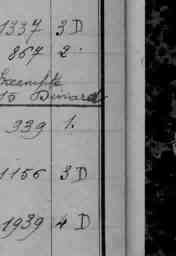 1337 3 D
867 2.
Exempt
10 Dinard
939 1.
1156 3 D
1939 4 D